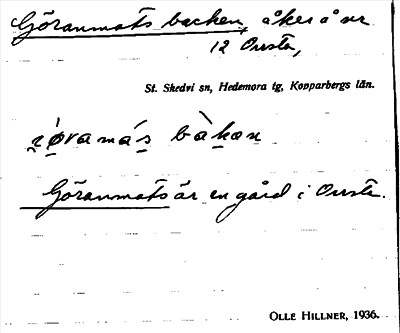 Göranmats backen, åker å nr
12 Onsta,
St. Skedvi sn, Hedemora tg, Kopparbergs län.
Göranmats är en gård i Onsta.
OLLE HILLNER, 1936.